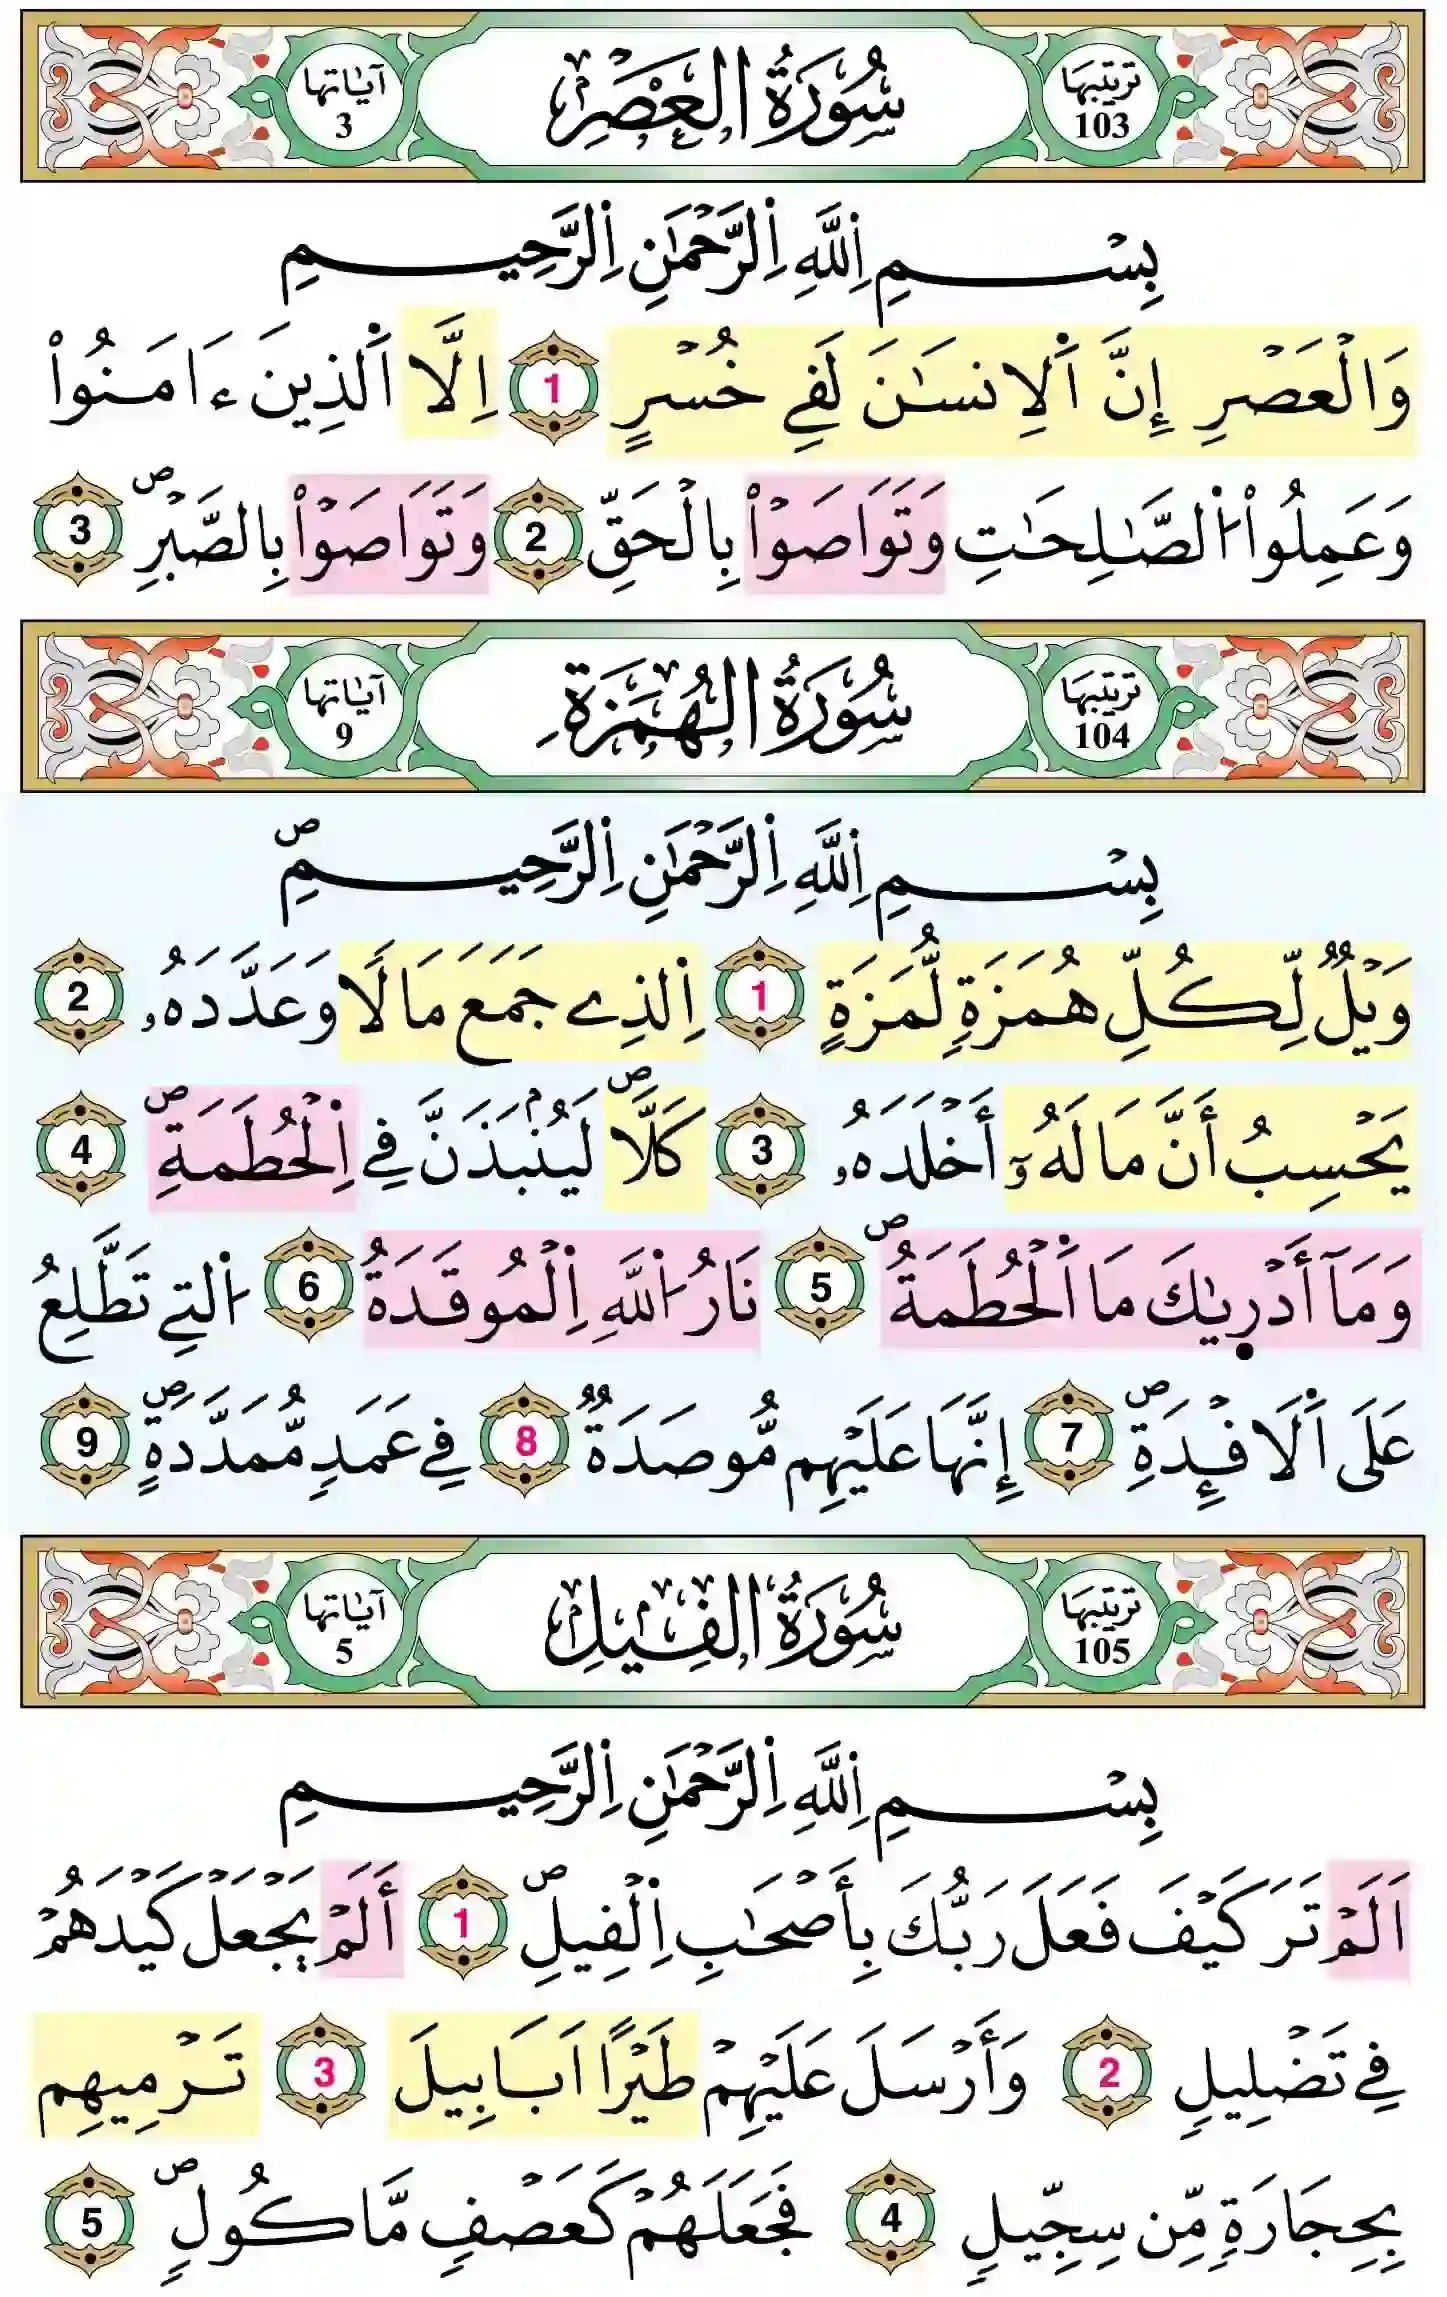 ترتيبها 103 سُورَةُ العَصْرِ آيَاتها 3
بِسْمِ اِللَّهِ اِلرَّحْمَٰنِ اِلرَّحِيمِ
وَالْعَصْرِ إِنَّ اَلِانسَٰنَ لَفِے خُسْرٍ 1 اِلَّا اَلذِينَ ءَامَنُواْ
وَعَمِلُواْ اُلصَّٰلِحَٰتِ وَتَوَاصَوْاْ بِالْحَقِّ 2 وَتَوَاصَوْاْ بِالصَّبْرِۖ 3
ترتيبها 104 سُورَةُ الهُمَزَةِ آيَاتها 9
بِسْمِ اِللَّهِ اِلرَّحْمَٰنِ اِلرَّحِيمِۖ
وَيْلٌ لِّكُلِّ هُمَزَةٍ لُّمَزَةٍ 1 اِلذِے جَمَعَ مَالًا وَعَدَّدَهُۥ 2
يَحْسِبُ أَنَّ مَا لَهُۥٓ أَخْلَدَهُۥ 3 كَلَّاۖ لَيُنۢبَذَنَّ فِے اِلْحُطَمَةِۖ 4
وَمَآ أَدْر۪يٰكَ مَا اَلْحُطَمَةُۖ 5 نَارُ اُللَّهِ اِلْمُوقَدَةُ 6 اُلتِے تَطَّلِعُ
عَلَى اَلَافْـِٕدَةِۖ 7 إِنَّهَا عَلَيْهِم مُّوصَدَةٌ 8 فِے عَمَدٍ مُّمَدَّدَةٍۖ 9
ترتيبها 105 سُورَةُ الفِيلِ آيَاتها 5
بِسْمِ اِللَّهِ اِلرَّحْمَٰنِ اِلرَّحِيمِ
اَلَمْ تَرَ كَيْفَ فَعَلَ رَبُّكَ بِأَصْحَٰبِ اِلْفِيلِۖ 1 أَلَمْ يَجْعَلْ كَيْدَهُمْ
فِے تَضْلِيلٍ 2 وَأَرْسَلَ عَلَيْهِمْ طَيْرًا اَبَابِيلَ 3 تَرْمِيهِم
بِحِجَارَةٍ مِّن سِجِّيلٍ 4 فَجَعَلَهُمْ كَعَصْفٍ مَّاكُولٍۖ 5